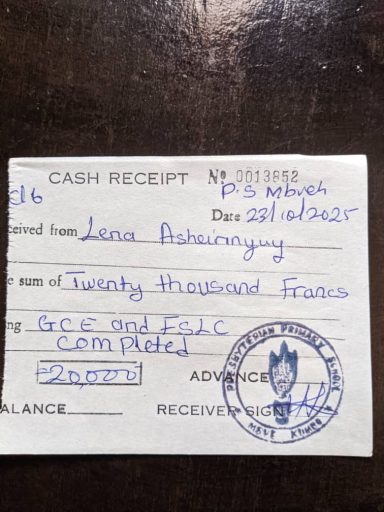 CASH RECEIPT Nº 0013852
cl6 P.S Mbveh
Date 23/10/2025
ceived from Lena Asheirinyuy
e sum of Twenty thousand Francs
ng GCE and FSLC
completed
=20,000 ADVANCE
ALANCE RECEIVER SIGN
PRESBYTERIAN PRIMARY SCHOOL
KUMBO